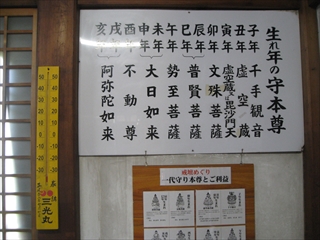 生れ年の守本尊
子年 千手観音
丑年 虚空蔵
寅年 虚空蔵又は毘沙門天
卯年 文珠菩薩
辰年
巳年 普賢菩薩
午年 勢至菩薩
未年
申年 大日如来
酉年 不動尊
戌年
亥年 阿弥陀如来
戒壇めぐり
一代守り本尊とご利益
三光丸